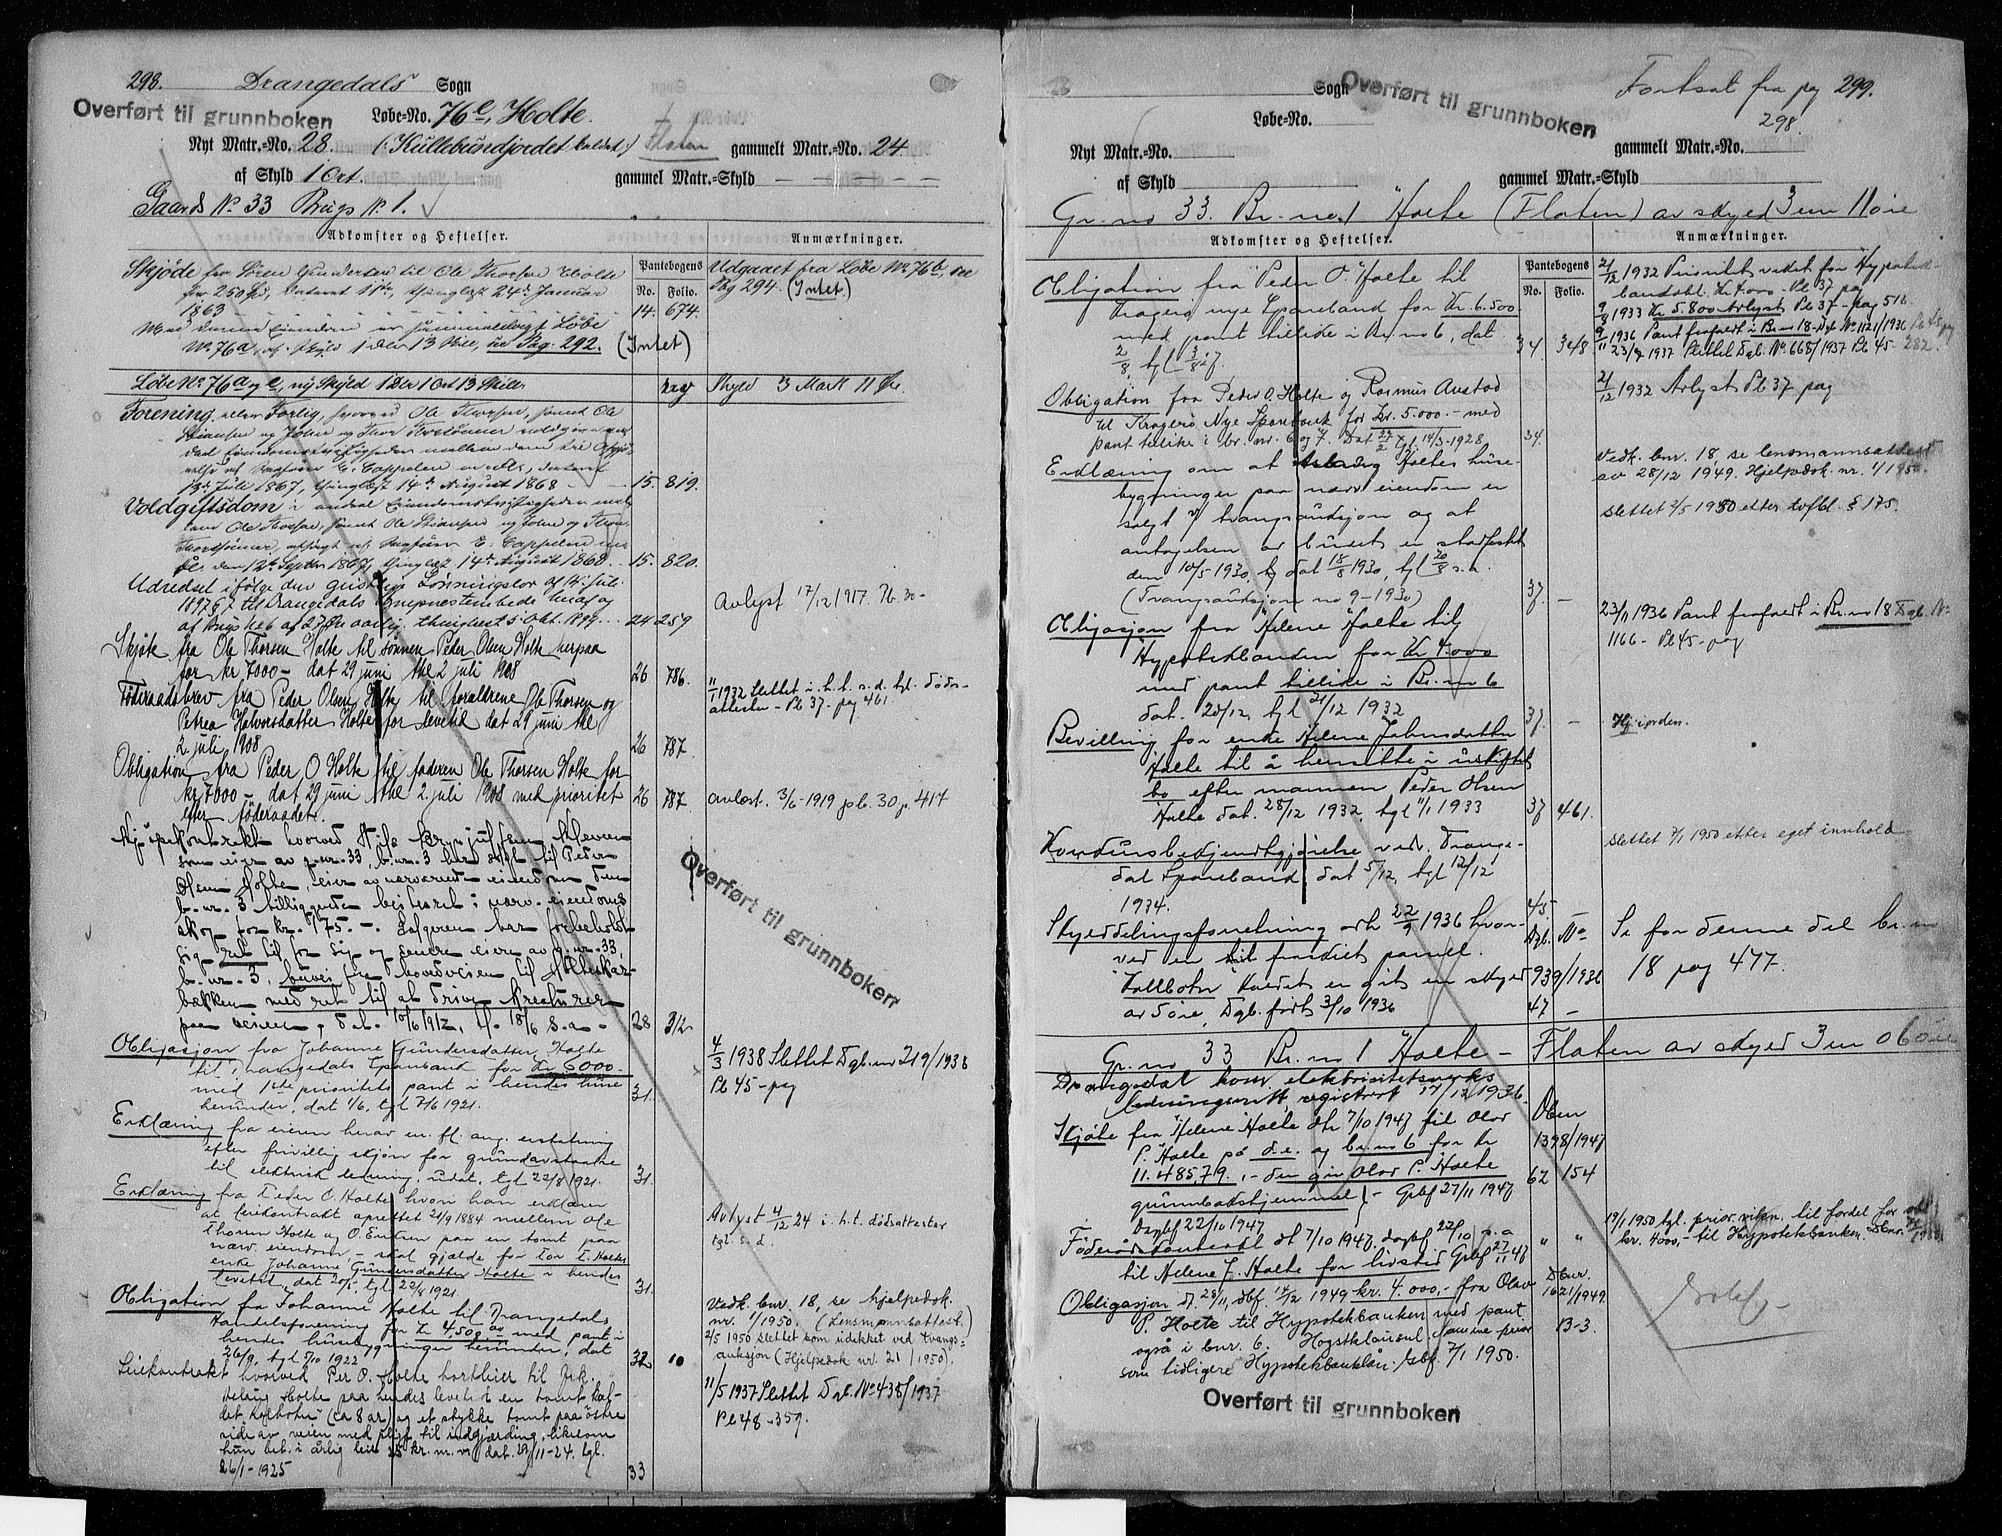 298. Drangedals Sogn
Overført til grunnboken
Løbe-No. 76e, Holte.
Nyt Matr.-No. 28. (: Kullebundjordet kaldet:) Flaten gammelt Matr.-No. 24
af Skyld 1 Ort. gammel Matr.-Skyld — — — — —
Gaards No. 33 Brugs No. 1.
Adkomster og Heftelser. Pantebogens No. Folio. Anmærkninger.
Skjøde fra Sören Gundersen til Ole Thorsen Holte
for 250 Spd, dateret 11te, thinglæst 24de Januar
1863 14. 674.
Udgaaet fra Løbe No. 76b, see
Pag 294. (Intet)
Med denne Eiendom er sammenlagt Løbe
No. 76a, af Skyld 1 Daler 13 Skill, see Pag. 292. (Intet)
Løbe No. 76a og e, ny Skyld 1 Daler 1 Ort 13 Skill. Skyld 3 Mark 11 Øre.
Forening eller Forlig, hvorved Ole Thorsen, samt Ole
13de Juli 1867, thinglæst 14de August 1868 15. 819.
Voldgiftsdom i andre Eiendomsstridigheder mel-
lem Ole Thorsen, samt Ole Stiansen og John og Thor
Thorsönner, afsagt af Sagfører E. Cappelen
den 12te Septbr 1867, thinglæst 14de August 1868. 15. 820.
Udredsel ifølge den geistlige Lønningslov af 14. Juli
1897 § 7 til Drangedals Sognepræstembede heraf og
af Brugs No 6 af 27 Øre aarlig, thinglæst 5 Okt. 1899. 24 259
Avlyst 17/12 1917.
Skjøte fra Ole Thorsen Holte til sønnen Peder Olsen Holte herpaa
for kr 7000 – dat 29 juni thl 2 juli 1908 26 786.
Føderaadsbrev fra Peder Olsen Holte til forældrene Ole Thorsen og
Petrea Halvorsdatter Holte for levetid dat 29 juni thl
2. juli 1908 26 787.
11/1 1932 Slettet i.h.t. s.d. tgl. døds-
attester – Pb 37 – pag 461.
Obligation fra Peder O Holte til faderen Ole Thorsen Holte for
kr 7000 – dat 29 juni thl 2. juli 1908 med prioritet
efter føderaadet. 26 787
avlæst. 3/6-1919 pb. 30 p. 417
Kjøpekontrakt hvorved Nils Brynjulfsen
som eier av g.nr. 33, b.nr. 3 har solgt til Peder
Olsen Holte eier av nærværende eiendom den
b.nr. 3 tilliggende beiteret i nærv. eiendoms
skog for kr. 175.–. Sælgeren har forbeholdt
sig ret til for sig og senere eiere av g.nr. 33,
b.nr. 3, buvei fra hovedveien til Holteskar-
bækken med ret til at drive kreaturer
paa veien, dat. 10/6 1912, tl. 18/6 s.a. 28 312
Overført til grunnboken
Obligasjon fra Johanne Gundersdatter Holte
til Drangedals Sparebank for Kr 6000
med 1ste prioritets pant i hendes huse
herunder, dat 1/6, tgl 7/6 1921. 31.
4/3 1938 Slettet Dgb.nr 219/1938
Pb 45 – pag
Erklæring fra eieren herav m. fl. ang. erstatning
efter frivillig skjøn for grundavstaaelse
til elektrisk ledning, udat, tgl 22/8 1921. 31.
Erklæring fra Peder O. Holte hvori han erklærer
at leiekontrakt oprettet 21/9 1884 mellem Ole
Thorsen Holte og O. Eriksen paa en tomt paa
nærv. eiendom – skal gjælde for Tor T. Holtes
enke Johanne Gundersdatter Holte i hendes
levetid, dat 20/5, tgl 22/8 1921. 31.
Avlyst 4/12 24 i.h.t. dødsattester
tgl. s.d.
Obligation fra Johanne Holte til Drangedals
Handelsforening for Kr 4,500 – med pant i
hendes husebygninger herunder, dat
26/9, tgl 5/10 1922 32 10
Vedk. bnr. 18, se hjelpedok.
nr. 1/1950. (Lensmannsattest.)
2/5 1950 slettet som udekket ved tvangs-
auksjon (Hjelpedok nr. 21/1950).
Leiekontrakt hvorved Per P. Holte bortleier til
Holte paa hendes levetid en tomt kal-
det Kolbotn (ca 8 ar) og et stykke tomt paa østre
side av veien med plikt til indgjærding, likesom
hun bet. i årlig leie 25 kr. m.v. dat. 29/11-24. tgl.
26/1-1925 33
11/5 1937 Slettet Dgb. No 438/1937
Pb 48 – 359.
Overført til grunnboken
Fortsat fra pag 298.
299.
Sogn
Løbe-No.
Nyt Matr.-No. gammelt Matr.-No.
af Skyld gammel Matr.-Skyld
Gr.no 33. Br.no 1 Holte (Flaten) av skyld 3 mrk 11 øre
Adkomster og Heftelser. Pantebogens No. Folio. Anmærkninger.
Obligation fra Peder O Holte til
Kragerø nye Sparebank for Kr. 6.500
med pant tillike i Br.no 6, dat
2/8, tgl 3/8 27. 34. 348
21/12 1932 Prioritet veket for Hypotek-
banklån Kr 4.000 – Pb 37 – pag
9/8 1933 Kr 5.800 Avlyst Pb 37 – pag 516
9/11 1936 Pant frafaldt i Br.no 18 – Dgb No 1121/1936 Pb 45, pag
23/8 1937 Slettet Dgb. No 668/1937 Pb 45 – 282.
Obligation fra Peder O. Holte og Rasmus Austad
til Kragerø Nye Sparebank for Kr. 5.000.– med
pant tillike i br. nr. 6 og 7. Dat 27/2 tgl. 14/3-1928. 34.
21/12 1932 Avlyst Pb 37 – pag
Erklæring om at Holtes huse-
bygninger paa nærv. eiendom er
solgt v/ tvangsauksjon og at
antagelsen av budet er stadfestet
den 10/5-1930, dat 18/8 1930, tgl 20/8 s.a.
(Tvangsauksjon no 9-1930) 37. –
Vedk. bnr. 18 se lensmannsattest
av 28/12 1949. Hjelpedok. nr. 1/1950.
slettet 2/5 1950 etter tvfbl. § 175.
Obligasjon fra Helene Holte til
Hypotekbanken for Kr 4.000
med pant tillike i Br.no 6
dat. 20/12, tgl 21/12 1932 37. –
23/11 1936 Pant frafaldt i Br.no 18 Dgb. No
1166 – Pb 45 – pag
Bevilling for enke Helene Johnsdatter
Holte til å hensitte i uskiftet
bo efter mannen Peder Olsen
Holte dat. 28/12 1932, tgl 11/1 1933 37 461.
Hj. i orden.
Konkursbekjendtgjørelse vedr. Drange-
dal Sparebank dat 5/12, tgl 12/12
1934. 45
slettet 7/1 1950 etter eget innhold.
Skylddelingsforretning avh 22/9 1936 hvor-
ved en til fradelt parsel
"Kolbotn" kaldet er git en skyld
av 5 øre, Dgb. ført 3/10 1936
Dgb. No 939/1936
47 –
Se for denne del br.nr
18 pag 477.
Gr.no 33 Br.no 1 Holte – Flaten av skyld 3 mrk 06 øre
Drangedal kom. elektrisitetsverks
ledningsnett, registrert 17/12 1936.
Skjøte fra Helene Holte dt 7/10 1947 til Olav
P. Holte på d.e. og br.no 6 for Kr
11.485,79. – den gir Olav P. Holte
grunnbokshjemmel – Grbf 27/11 1947
Dagbf 22/10 1947
1398/1947
62 154
Føderådskontrakt dt 7/10 1947, dagbf 22/10 s.a.
til Helene J. Holte for livstid Grbf 27/11 47 " "
19/1 1950 tgl. prior.vikn. til fordel for obl
kr. 4000,– til Hypotekbanken. Dbnr.
Obligasjon dt. 28/11, dbf. 12/12 1949 kr. 4.000,– fra Olav
P. Holte til Hypotekbanken med pant
også i bnr. 6. Høgstklausul. Samme prior
som tidligere Hypotekbanklån. Gbf. 7/1 1950.
Dbnr.
1621/1949.
B-3.
Overført til grunnboken